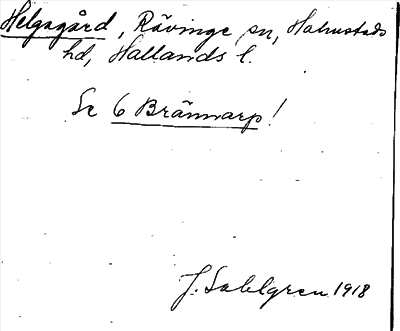 Helgagård, Rävinge sn, Halmstads
hd, Hallands l.
Se 6 Brännarp!
J. Sahlgren 1918